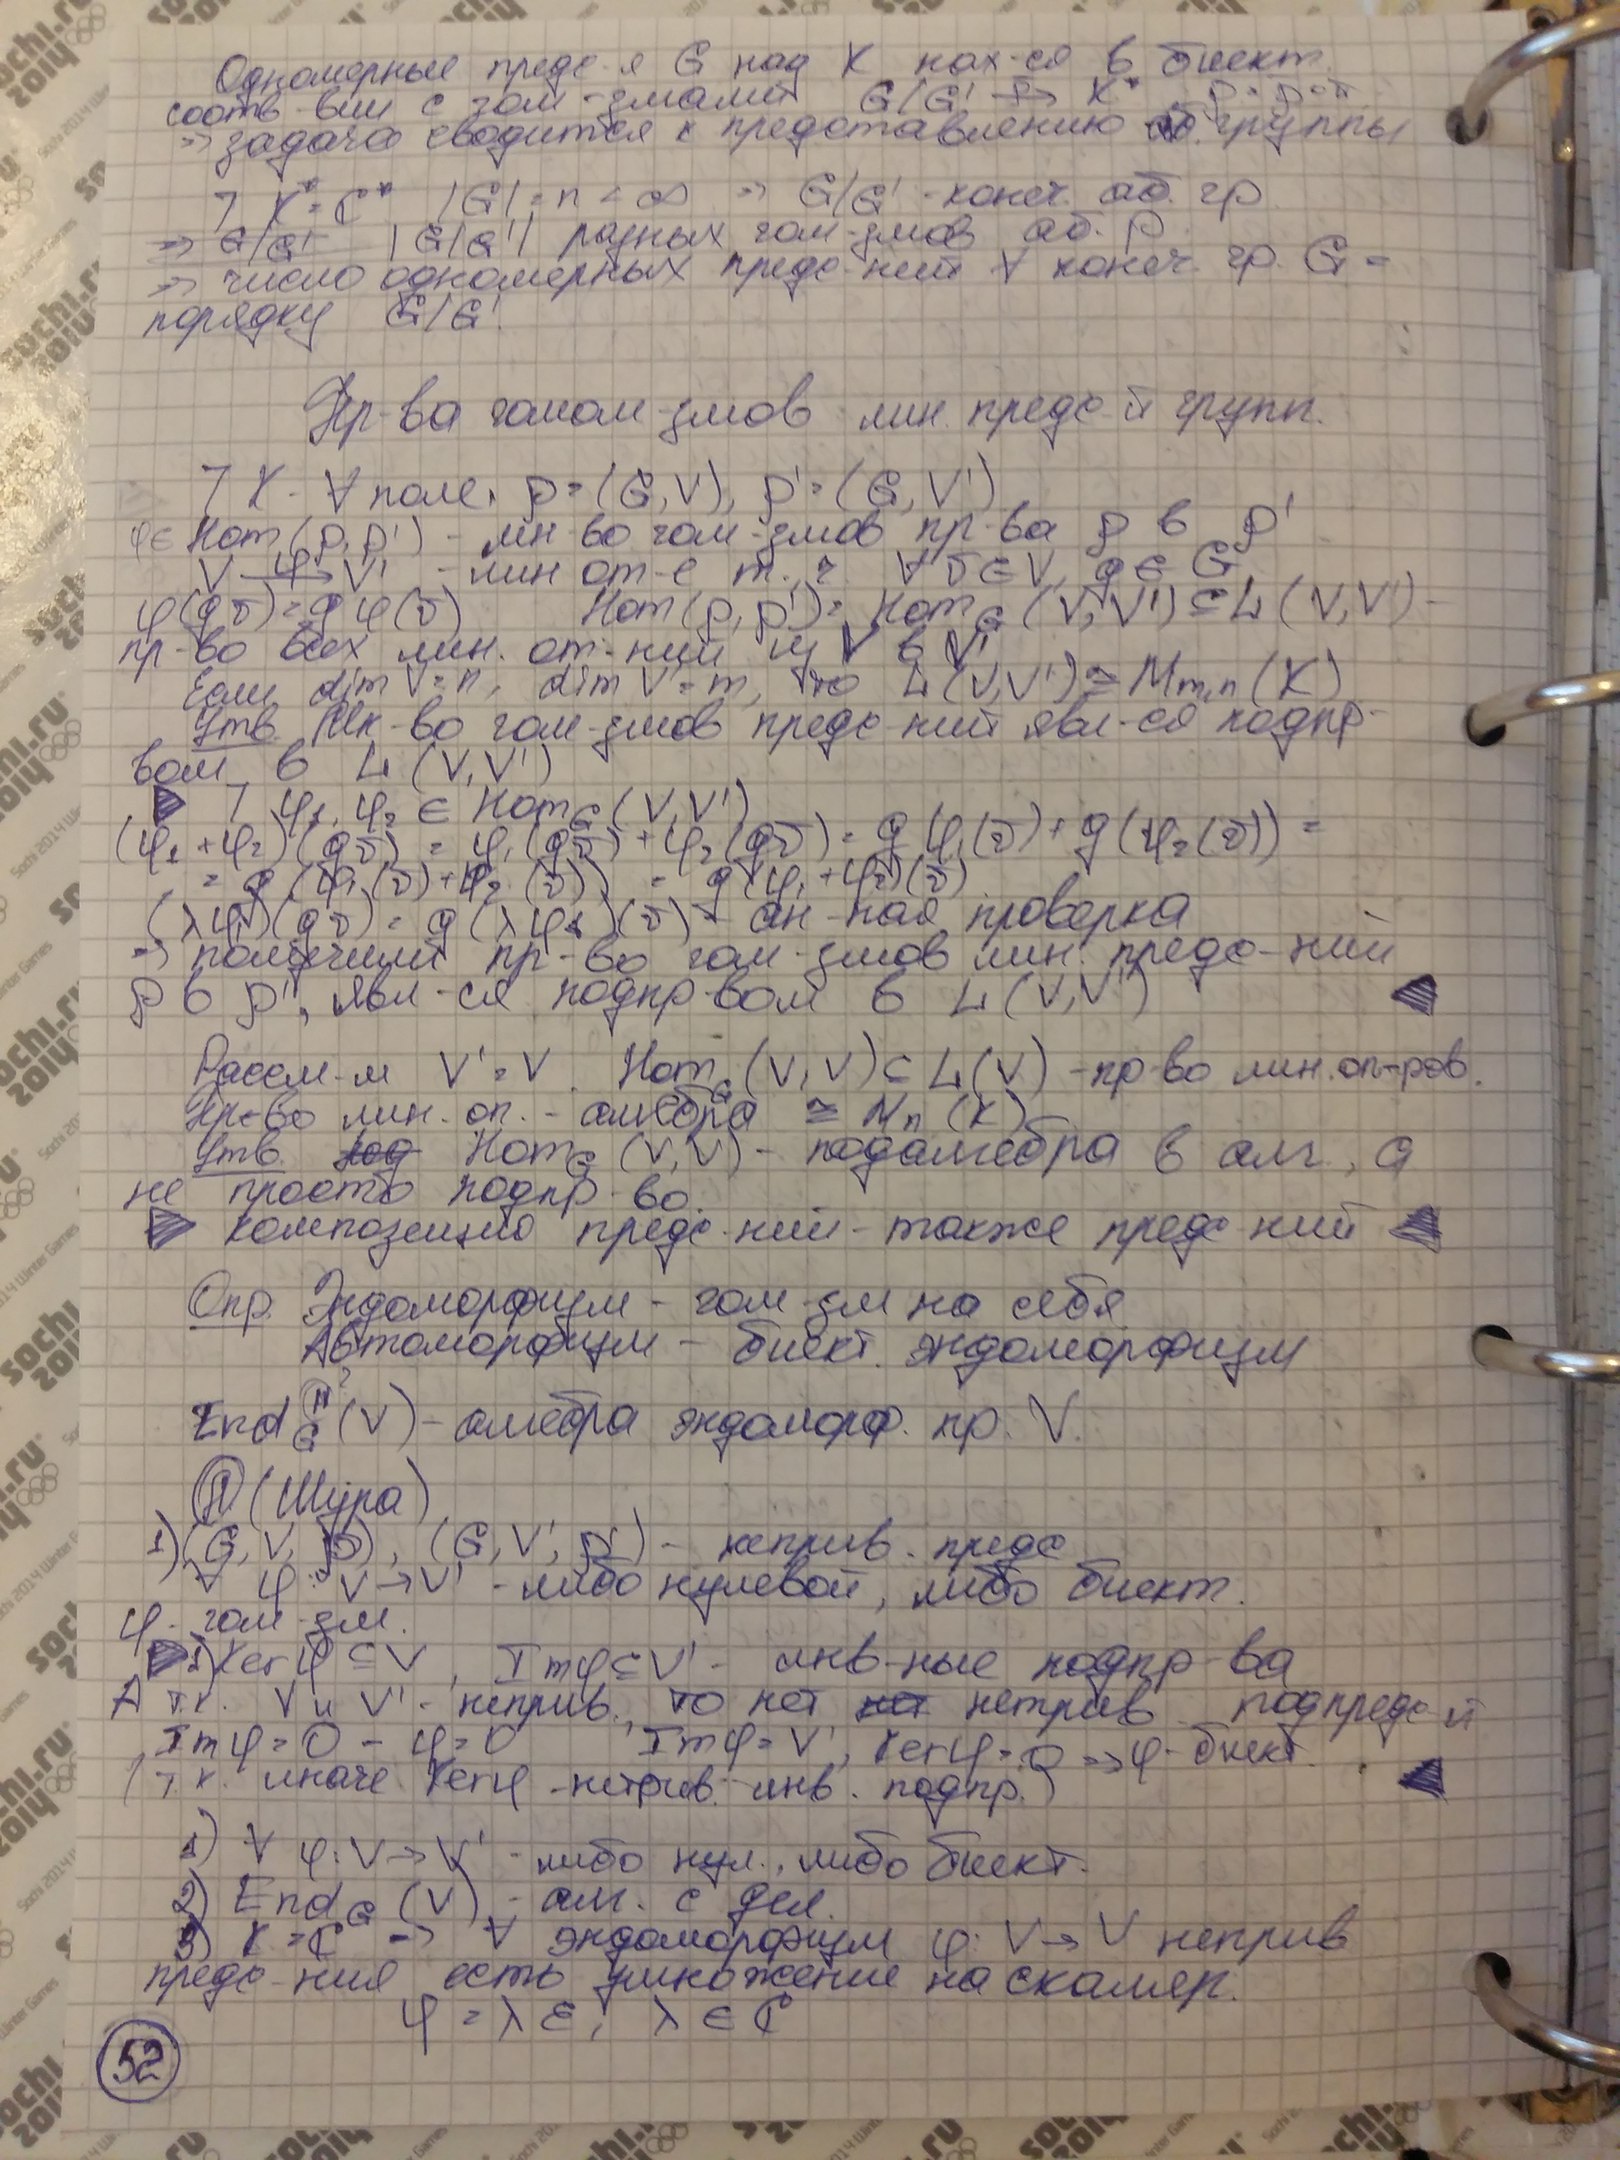 Одномерные предс-я G над K нах-ся в биект.
соотв-вии с гом-змами G/G' → K*
⇒ задача сводится к представлению аб. группы
⅂ K* = ℂ* |G| = n < ∞ ⇒ G/G' - конеч. аб. гр
⇒ G/G' |G/G'| разных гом-змов аб. ρ
⇒ число одномерных предс-ний ∀ конеч. гр. G =
порядку G/G'.
Пр-ва гомом-змов лин. предс-й групп.
⅂ K - ∀ поле, ρ = (G, V), ρ' = (G, V')
φ∈ Hom(ρ, ρ') - мн-во гом-змов пр-ва ρ в ρ'
V –φ→ V' - лин от-е т. ч. ∀ v̄ ∈ V, g ∈ G
φ(gv̄) = gφ(v̄) Hom(ρ, ρ') = Hom_G(V, V') ⊆ L(V, V') -
пр-во всех лин. от-ний из V в V'
Если dim V = n, dim V' = m, то L(V, V') ≅ M_{m,n}(K)
Утв. Мн-во гом-змов предс-ний явл-ся подпр-
вом в L(V, V')
▶ ⅂ φ₁, φ₂ ∈ Hom_G(V, V')
(φ₁ + φ₂)(gv̄) = φ₁(gv̄) + φ₂(gv̄) = g(φ₁(v̄) + g(φ₂(v̄)) =
= g(φ₁(v̄) + φ₂(v̄)) = g(φ₁ + φ₂)(v̄)
(λφ₁)(gv̄) = g(λφ₁)(v̄) - ан-ная проверка
⇒ получим пр-во гом-змов лин. предс-ний
ρ в ρ', явл-ся подпр-вом в L(V, V') ◀
Рассм-м V' = V. Hom_G(V, V) ⊆ L(V) - пр-во лин. оп-ров.
Пр-во лин. оп. - алгебра ≅ M_n(K)
Утв. Hom_G(V, V) - подалгебра в алг., а
не просто подпр-во.
▶ композицию предс-ний - также предс-ний ◀
Опр. Эндоморфизм - гом-зм на себя
Автоморфизм - биект. эндоморфизм
End_G(V) - алгебра эндоморф. пр. V.
Л (Шура)
1) (G, V, ρ), (G, V', ρ') - неприв. предс
∀ φ: V → V' - либо нулевой, либо биект.
φ - гом-зм.
▶ 1) Ker φ ⊆ V, Im φ ⊆ V' - инв-ные подпр-ва
А т.к. V и V' - неприв., то нет нетрив. подпредс-й
Im φ = 0 - φ = 0 Im φ = V', Ker φ = 0 ⇒ φ - биект.
(т.к. иначе Ker φ - нетрив. инв. подпр.) ◀
1) ∀ φ: V → V' - либо нул., либо биект.
2) End_G(V) - алг. с дел.
3) K = ℂ → ∀ эндоморфизм φ: V → V неприв
предс-ния есть умножение на скаляр.
φ = λε, λ ∈ ℂ
52